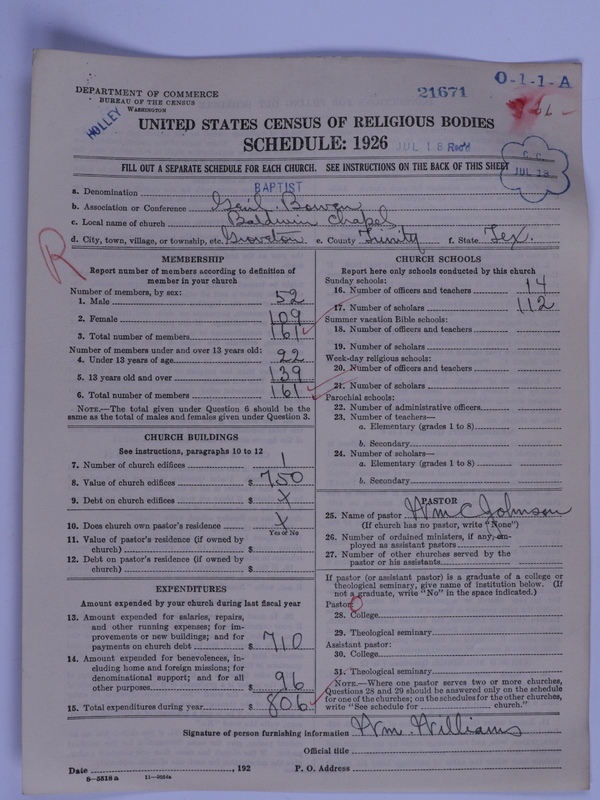 DEPARTMENT OF COMMERCE
BUREAU OF THE CENSUS
WASHINGTON
21671
O-1-1-A
HOLLEY
UNITED STATES CENSUS OF RELIGIOUS BODIES
SCHEDULE: 1926
JUL 18 Rec'd
C.C.
JUL 18
FILL OUT A SEPARATE SCHEDULE FOR EACH CHURCH. SEE INSTRUCTIONS ON THE BACK OF THIS SHEET
a. Denomination BAPTIST
b. Association or Conference Gail. Bowen
c. Local name of church Baldwin Chapel
d. City, town, village, or township, etc. Groveton e. County Trinity f. State Tex.
R
MEMBERSHIP
Report number of members according to definition of
member in your church
Number of members, by sex:
1. Male 52
2. Female 109
3. Total number of members 161
Number of members under and over 13 years old:
4. Under 13 years of age 22
5. 13 years old and over 139
6. Total number of members 161
NOTE.—The total given under Question 6 should be the
same as the total of males and females given under Question 3.
CHURCH BUILDINGS
See instructions, paragraphs 10 to 12
7. Number of church edifices 1
8. Value of church edifices $ 750
9. Debt on church edifices $ X
10. Does church own pastor's residence X
Yes or No
11. Value of pastor's residence (if owned by
church) $
12. Debt on pastor's residence (if owned by
church) $
EXPENDITURES
Amount expended by your church during last fiscal year
13. Amount expended for salaries, repairs,
and other running expenses; for im-
provements or new buildings; and for
payments on church debt $ 710
14. Amount expended for benevolences, in-
cluding home and foreign missions; for
denominational support; and for all
other purposes $ 96
15. Total expenditures during year $ 806
CHURCH SCHOOLS
Report here only schools conducted by this church
Sunday schools:
16. Number of officers and teachers 14
17. Number of scholars 112
Summer vacation Bible schools:
18. Number of officers and teachers
19. Number of scholars
Week-day religious schools:
20. Number of officers and teachers
21. Number of scholars
Parochial schools:
22. Number of administrative officers
23. Number of teachers—
a. Elementary (grades 1 to 8)
b. Secondary
24. Number of scholars—
a. Elementary (grades 1 to 8)
b. Secondary
PASTOR
25. Name of pastor Wm C Johnson
(If church has no pastor, write "None")
26. Number of ordained ministers, if any, em-
ployed as assistant pastors
27. Number of other churches served by the
pastor or his assistants
If pastor (or assistant pastor) is a graduate of a college or
theological seminary, give name of institution below. (If
not a graduate, write "No" in the space indicated.)
Pastor:
28. College
29. Theological seminary
Assistant pastor:
30. College
31. Theological seminary
NOTE.—Where one pastor serves two or more churches,
Questions 28 and 29 should be answered only on the schedule
for one of the churches; on the schedules for the other churches,
write "See schedule for church."
Signature of person furnishing information Wm. Williams
Official title
Date , 192 P. O. Address
8—5518 a 11—9024a